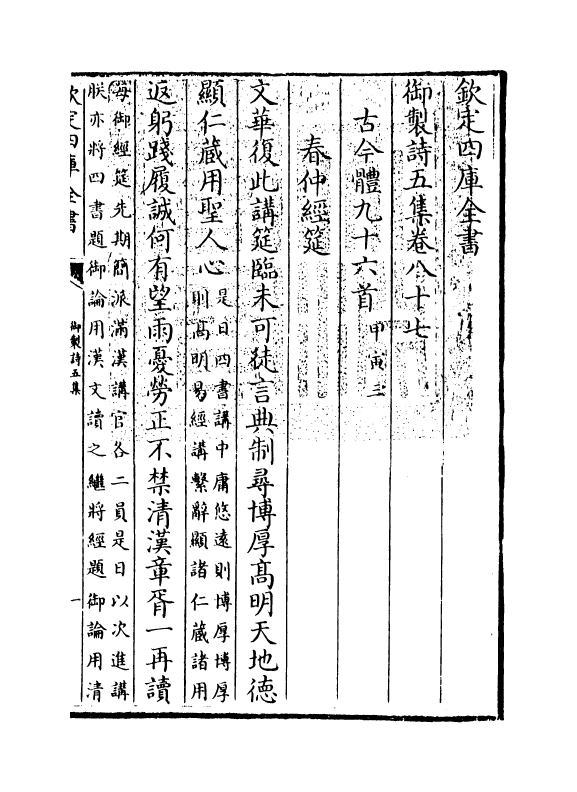 欽定四庫全書
御製詩五集卷八十七
古今體九十六首甲寅三
春仲經筵
文華復此講筵臨未可徒言典制尋博厚高明天地德
顯仁藏用聖人心是日四書講中庸悠遠則博厚博厚
則高明易經講繫辭顯諸仁藏諸用
返躬踐履誠何有望雨憂勞正不禁清漢章胥一再讀
每御經筵先期簡派滿漢講官各二員是日以次進講
朕亦將四書題御論用漢文讀之繼將經題御論用清
欽定四庫全書
御製詩五集
一